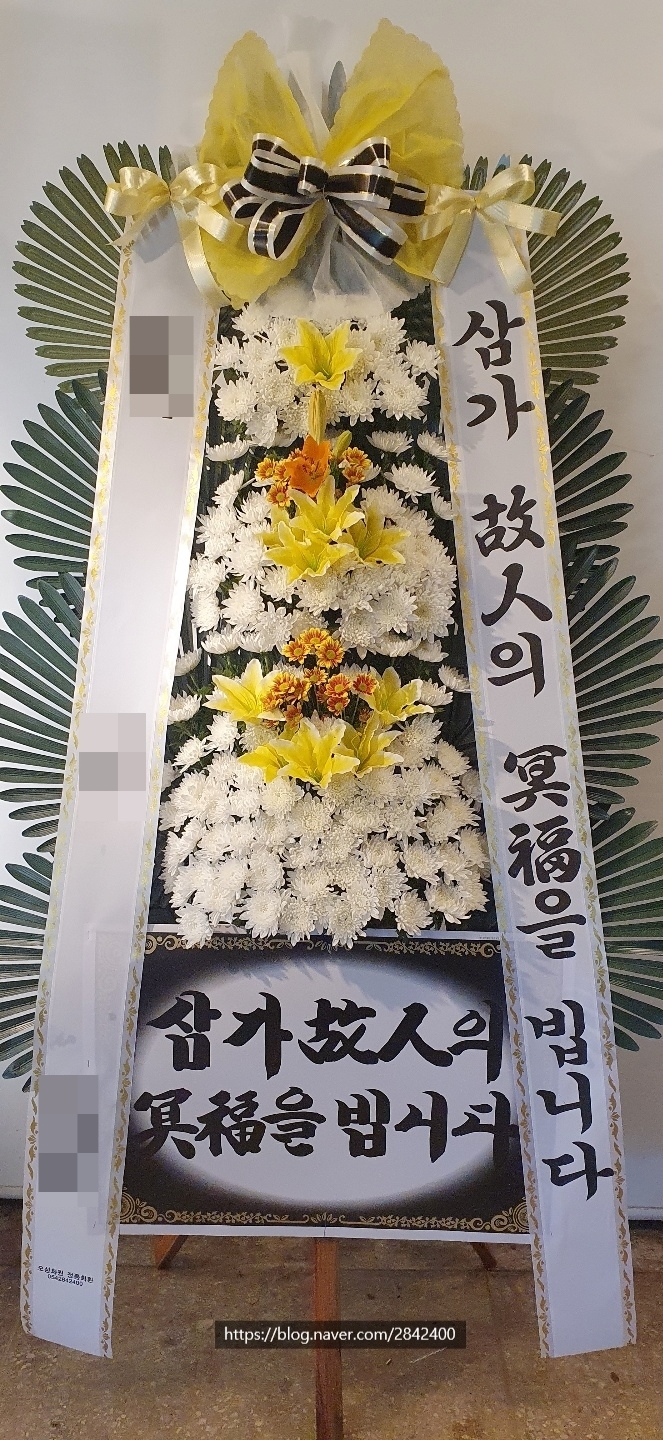 삼가 故人의 冥福을 빕니다
삼가故人의
冥福을빕니다
0542842400
https://blog.naver.com/2842400